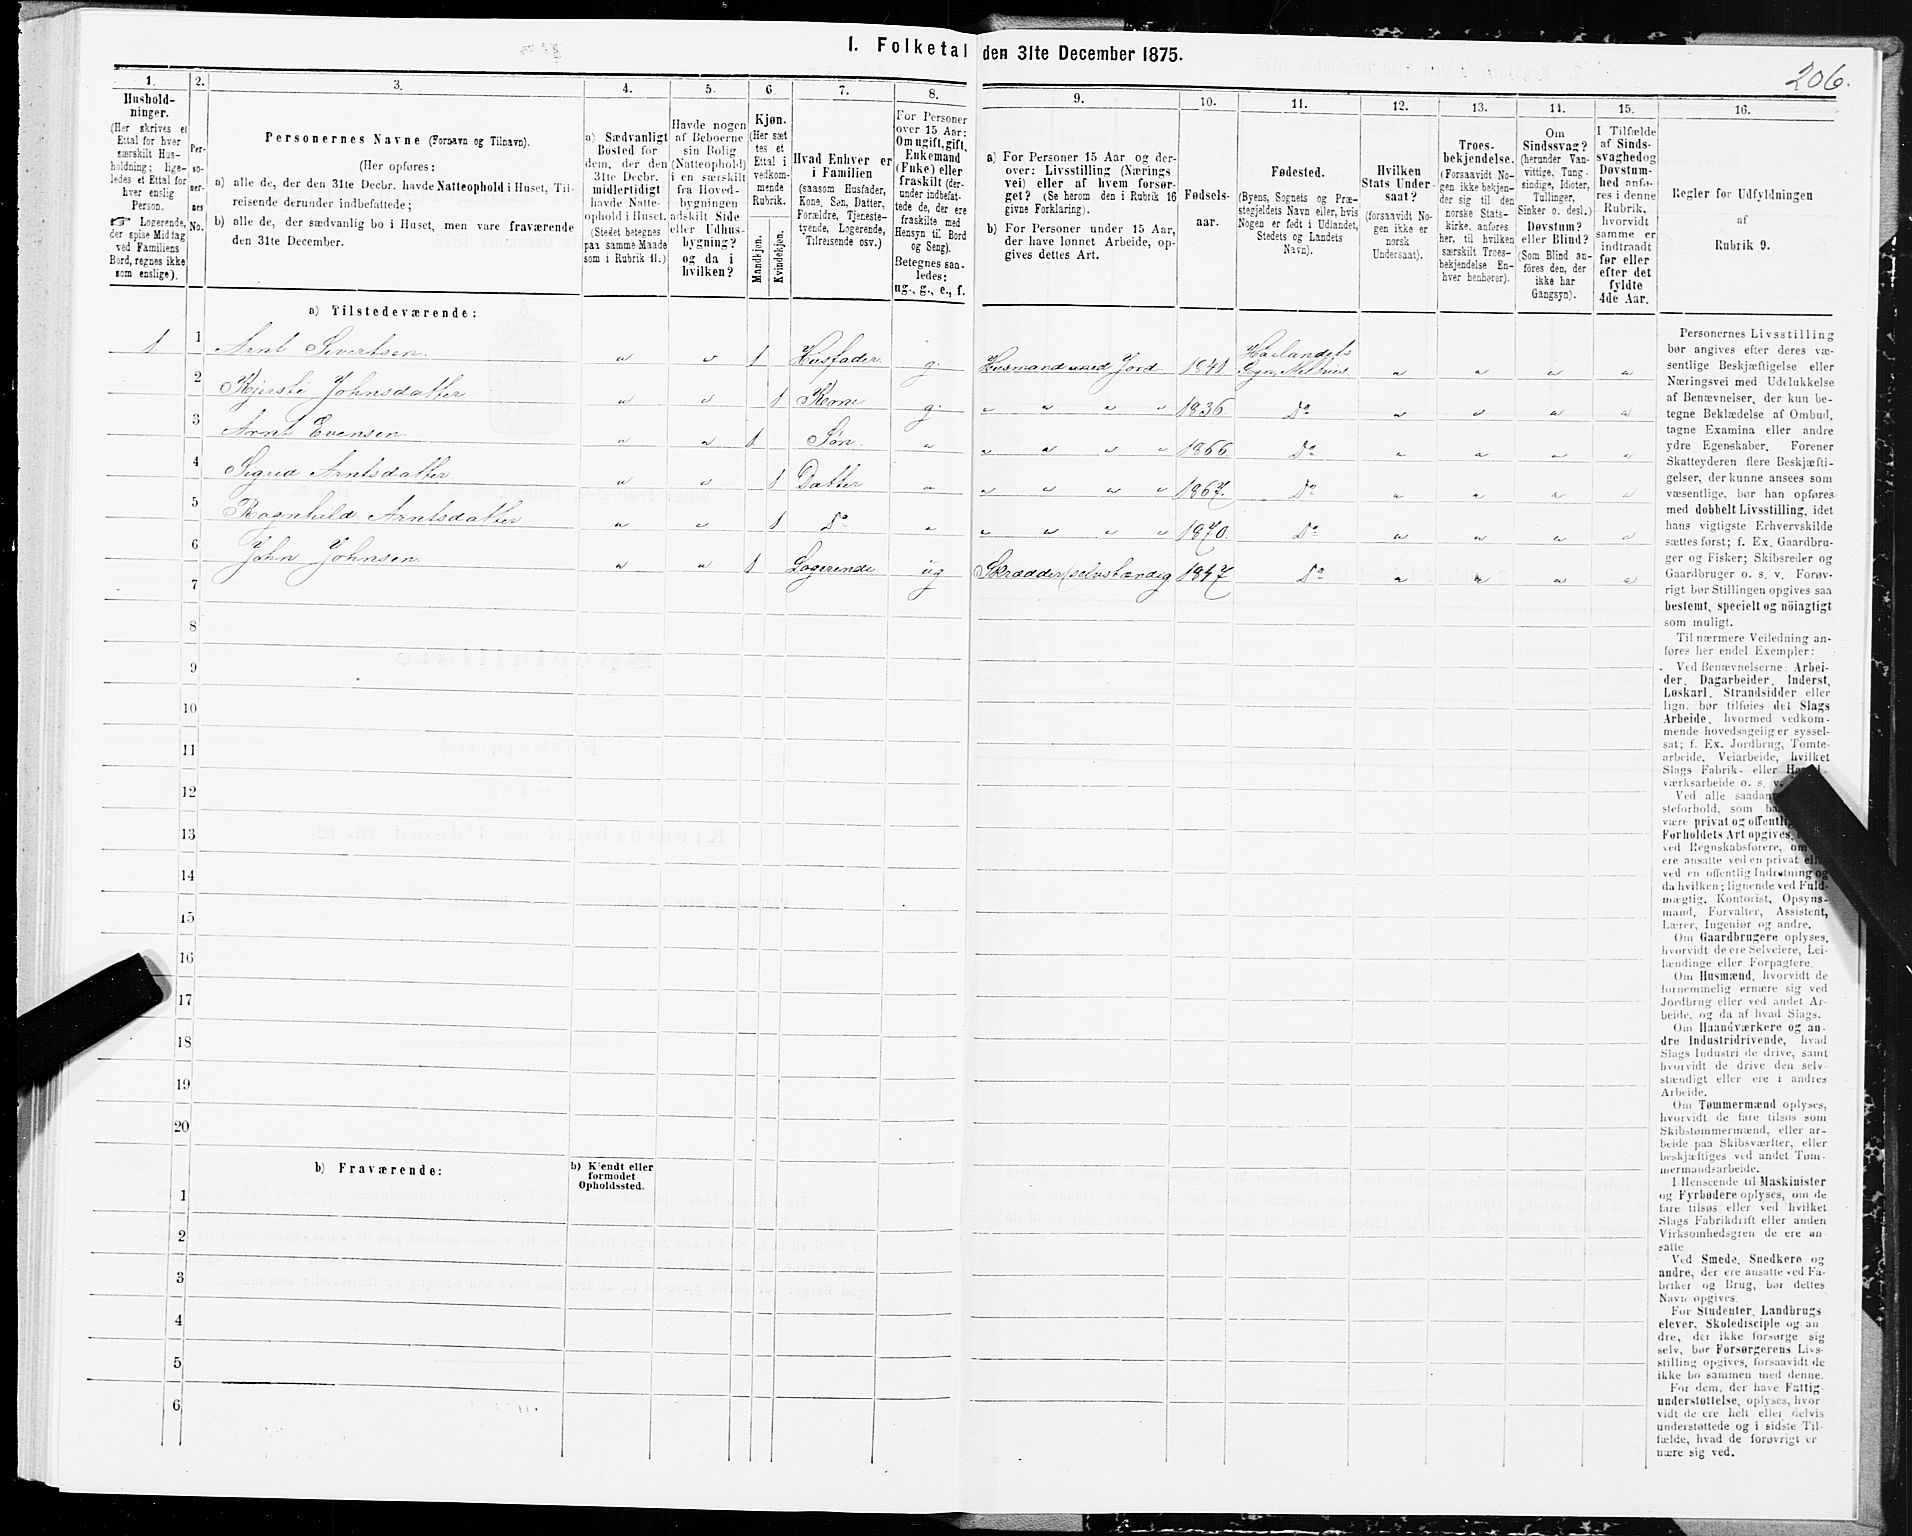 I. Folketal den 31te December 1875.
206.
1. 2. 3. 4. 5. 6. 7. 8. 9. 10. 11. 12. 13. 14. 15. 16.
Hushold-
ninger.
(Her skrives et
Ettal for hver
særskilt Hus-
holdning; lige-
ledes et Ettal for
hver enslig
Person.
☞ Logerende,
der spise Middag
ved Familiens
Bord, regnes ikke
som enslige).
Per-
so-
ner-
nes
No.
Personernes Navne (Fornavn og Tilnavn).
(Her opføres:
a) alle de, der den 31te Decbr. havde Natteophold i Huset, Til-
reisende derunder indbefattede;
b) alle de, der sædvanlig bo i Huset, men vare fraværende
den 31te December.
a) Sædvanligt
Bosted for
dem, der den
31te Decbr.
midlertidigt
havde Natte-
ophold i Huset.
(Stedet betegnes
paa samme Maade
som i Rubrik 11.)
Havde nogen
af Beboerne
sin Bolig
(Natteophold)
i en særskilt
fra Hoved-
bygningen
adskilt Side
eller Udhus-
bygning?
og da i
hvilken?
Kjøn.
(Her sæt
tes et
Ettal i
vedkom-
mende
Rubrik.
Mandkjøn.
Kvindekjøn.
Hvad Enhver er
i Familien
(saasom Husfader,
Kone, Søn, Datter,
Forældre, Tjeneste-
tyende, Logerende,
Tilreisende osv.)
For Personer
over 15 Aar:
Om ugift, gift,
Enkemand
(Enke) eller
fraskilt (der-
under indbefat-
tede de, der ere
fraskilte med
Hensyn til Bord
og Seng).
Betegnes saa-
ledes:
ug., g., e., f.
a) For Personer 15 Aar og der-
over: Livsstilling (Nærings
vei) eller af hvem forsør-
get? (Se herom den i Rubrik 16
givne Forklaring).
b) For Personer under 15 Aar,
der have lønnet Arbeide, op-
gives dettes Art.
Fødsels-
aar.
Fødested.
(Byens, Sognets og Præ-
stegjeldets Navn eller, hvis
Nogen er født i Udlandet,
Stedets og Landets
Navn).
Hvilken
Stats Under-
saat?
(forsaavidt No-
gen ikke er
norsk
Undersaat).
Troes-
bekjendelse.
(Forsaavidt No-
gen ikke bekjen-
der sig til den
norske Stats-
kirke, anføres
her, til hvilken
særskilt Troes-
bekjendelse En-
hver henhører).
Om
Sindssvag?
(herunder Van-
vittige, Tung-
sindige, Idioter,
Tullinger,
Sinker o. desl.)
Døvstum?
eller Blind?
(Som Blind an-
føres den, der
ikke har
Gangsyn).
I Tilfælde
af Sinds-
svaghed og
Døvstum-
hed anfø-
res i denne
Rubrik,
hvorvidt
samme er
indtraadt
før eller
efter det
fyldte
4de Aar.
Regler for Udfyldningen
af
Rubrik 9.
a) Tilstedeværende:
1 1 Arnt Sivertsen. " " 1 Husfader. g. Husmand med Jord 1841 Hølandets Sogn, Melhus " " " "
2 Kjersti Johnsdatter " " 1 Kone g. " " " " 1836 Do " " " "
3 Arnt Evensen " " 1 Søn. " " " " " 1866 Do " " " "
4 Sigrid Arntsdatter " " 1 Datter " " " " " 1867. Do " " " "
5 Ragnhild Arntsdatter " " 1 Do " " " " " 1870. Do " " " "
6 John Johnsen. " " 1 Logerende ug Skrædder (selvstændig 1847 Do " " " "
7
8
9
10
11
12
13
14
15
16
17
18
19
20
b) Fraværende:
b) Kjendt eller
formodet
Opholdssted.
1
2
3
4
5
6
Personernes Livsstilling
bør angives efter deres væ-
sentlige Beskjæftigelse eller
Næringsvei med Udelukkelse
af Benævnelser, der kun be-
tegne Beklædelse af Ombud,
tagne Examina eller andre
ydre Egenskaber. Forener
Skatteyderen flere Beskjæfti-
gelser, der kunne ansees som
væsentlige, bør han opføres
med dobbelt Livsstilling, idet
hans vigtigste Erhvervskilde
sættes først; f. Ex. Gaardbru-
ger og Fisker; Skibsreder og
Gaardbruger o. s. v. Forøv-
rigt bør Stillingen opgives saa
bestemt, specielt og nöiagtigt
som muligt.
Til nærmere Veiledning an-
føres her endel Exempler:
Ved Benævnelserne: Arbei-
der, Dagarbeider, Inderst,
Løskarl, Strandsidder eller
lign. bør tilføies det Slags
Arbeide, hvormed vedkom-
mende hovedsagelig er syssel-
sat; f. Ex. Jordbrug, Tomte-
arbeide, Veiarbeide, hvilket
Slags Fabrik- eller
værksarbeide o. s. v.
Ved alle saadan
steforhold, som
være privat og offentlig
Forholdets Art opgives,
ved Regnskabsførere, om
ere ansatte ved en privat eller
ved en offentlig Indretning og
da hvilken; lignende ved Fuld-
mægtig, Kontorist, Opsyns-
mand, Forvalter, Assistent,
Lærer, Ingeniør og andre.
Om Gaardbrugere oplyses,
hvorvidt de ere Selveiere, Lei-
lændinge eller Forpagtere.
Om Husmænd, hvorvidt de
fornemmelig ernære sig ved
Jordbrug eller ved andet Ar-
beide, og da af hvad Slags.
Om Haandværkere og an-
dre Industridrivende, hvad
Slags Industri de drive, samt
hvorvidt de drive den selv-
stændigt eller ere i andres
Arbeide.
Om Tømmermænd oplyses,
hvorvidt de fare tilsøs som
Skibstømmermænd, eller ar-
beide paa Skibsværfter, eller
beskjæftiges ved andet Tøm-
mermandsarbeide.
I Henseende til Maskinister
og Fyrbødere oplyses, om de
fare tilsøs eller ved hvilket
Slags Fabrikdrift eller anden
Virksomhedsgren de ere an-
satte.
Ved Smede, Snedkere og
andre, der ere ansatte ved Fa-
briker og Brug, bør dettes
Navn opgives.
For Studenter, Landbrugs
elever, Skoledisciple og an
dre, der ikke forsørge sig
selv, bør Forsørgerens Livs-
stilling opgives, forsaavidt de
ikke bo sammen med denne.
For dem, der have Fattig-
understøttelse, oplyses, hvor
vidt de ere helt eller delvis
understøttede og i sidste Til-
fælde, hvad de forøvrigt er
nære sig ved.